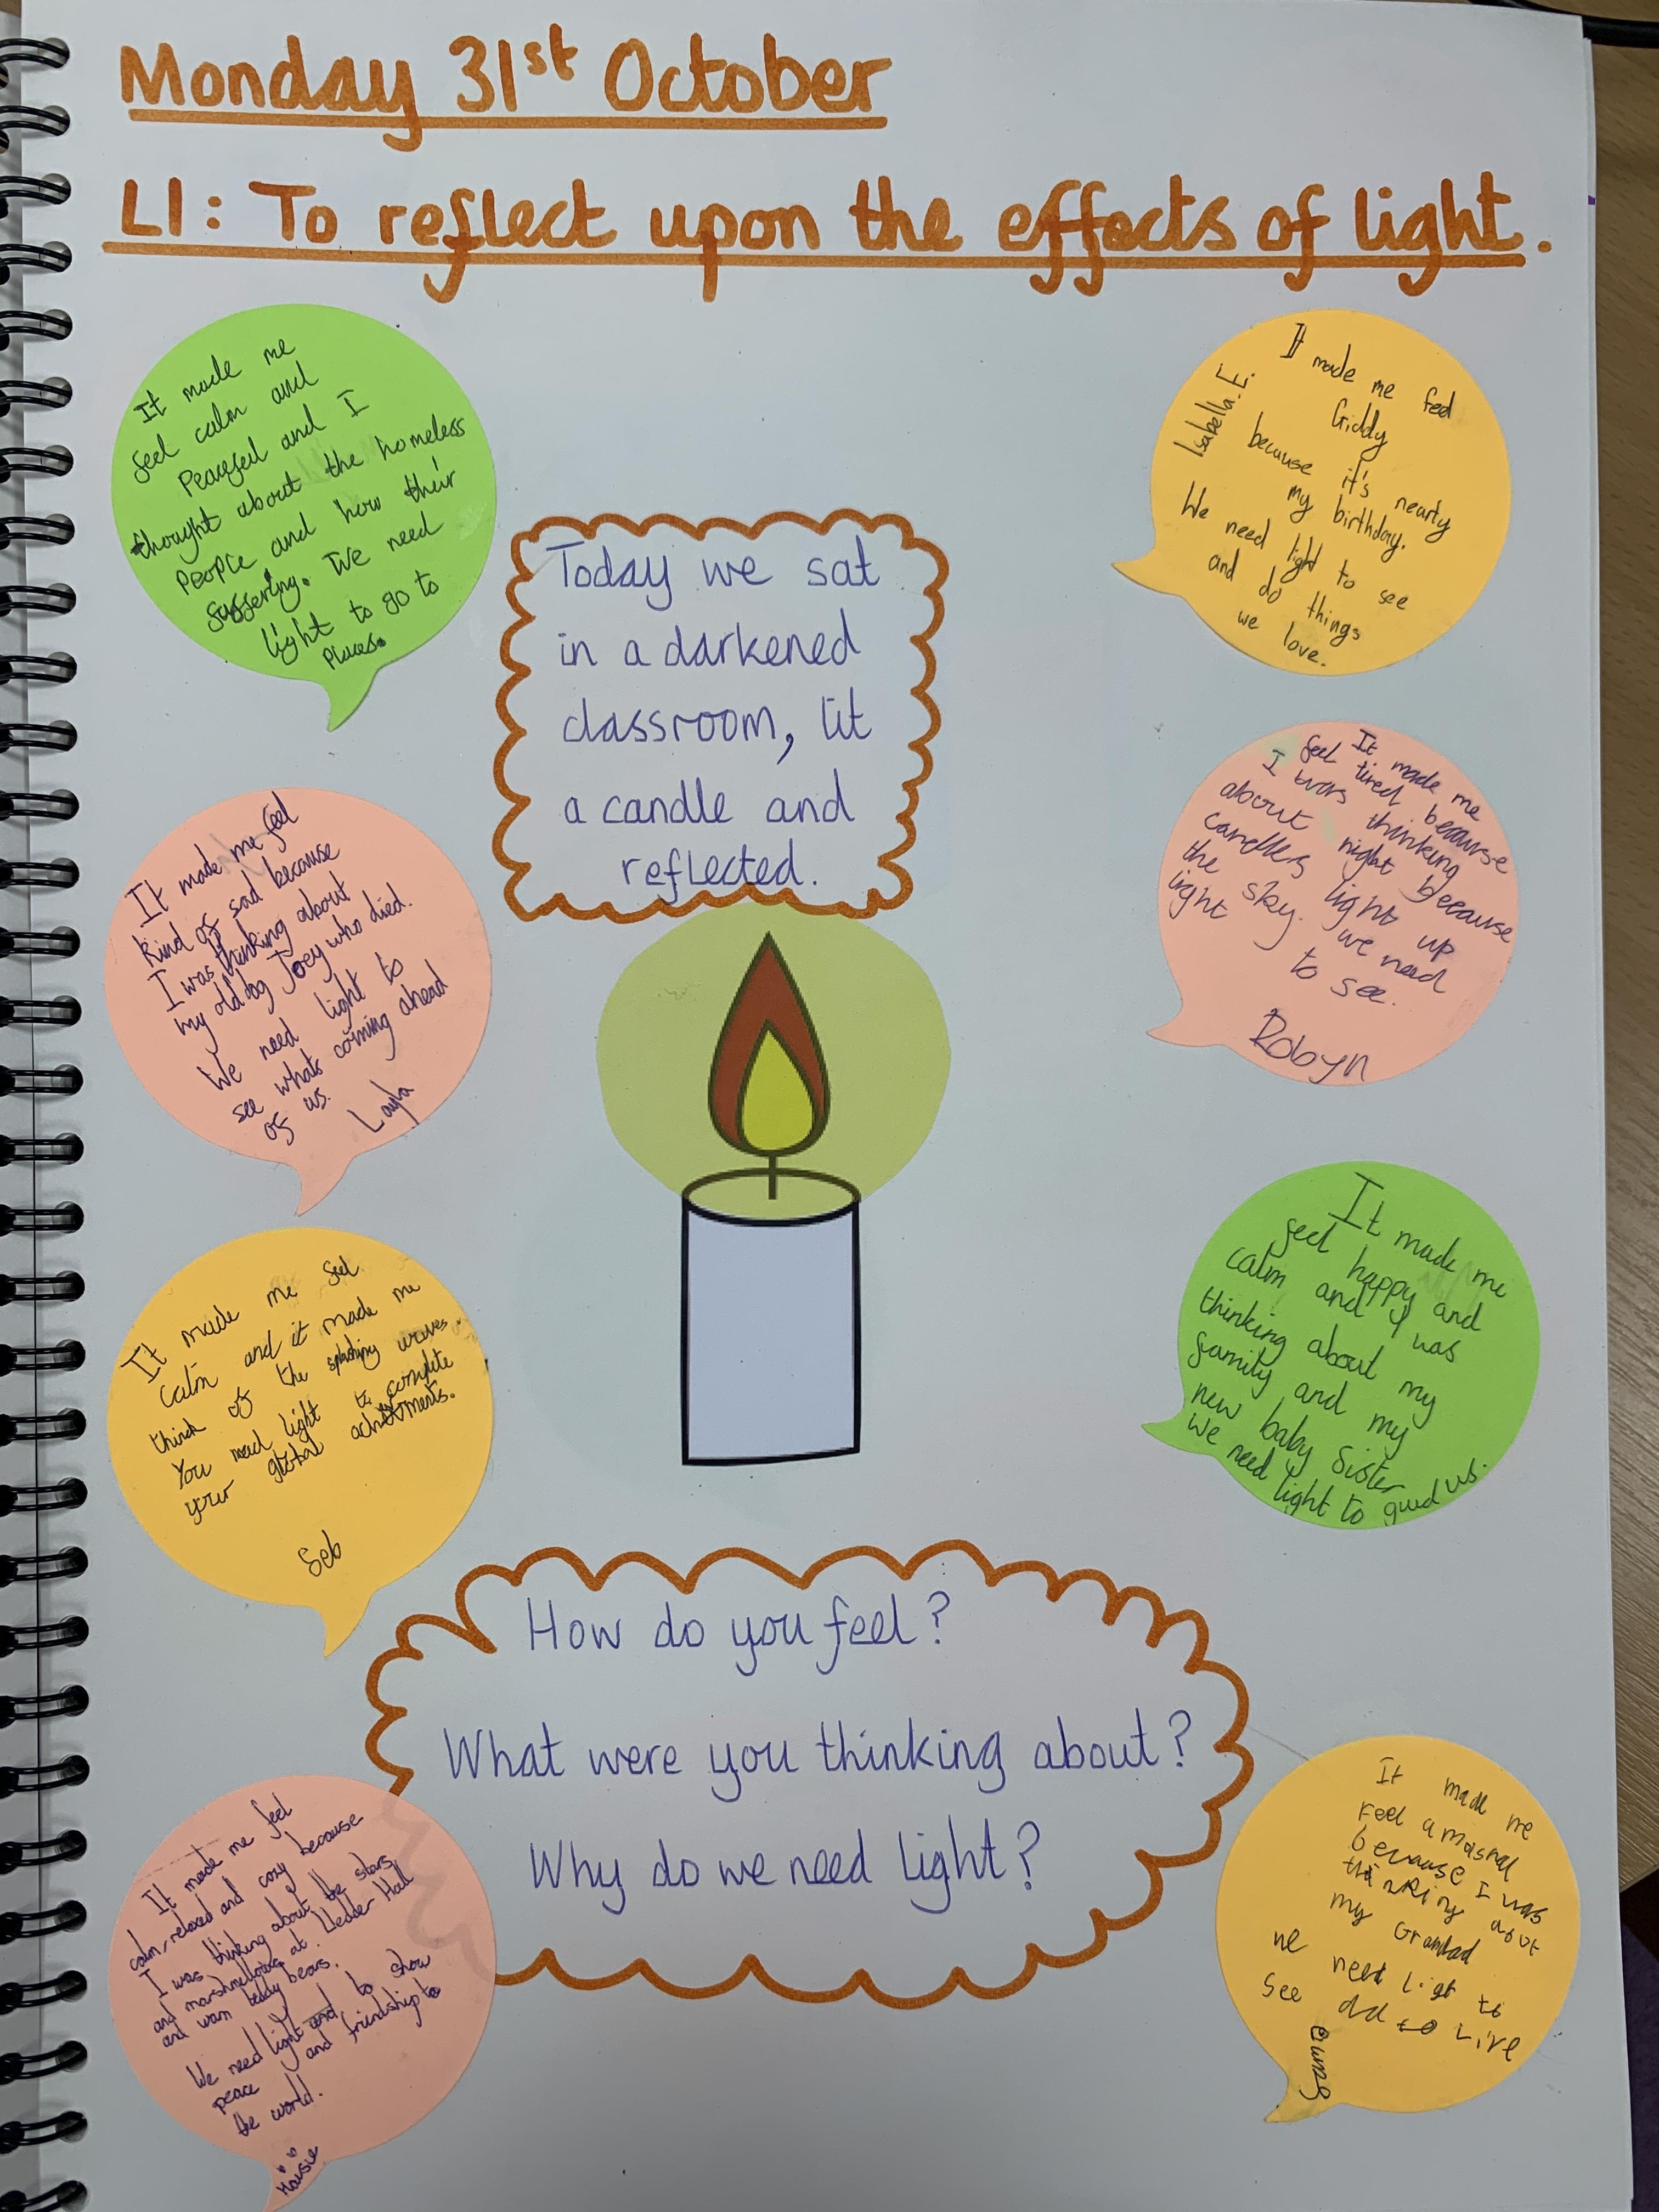 Monday 31st October
LI: To reflect upon the effects of light.
It made me
feel calm and
Peaceful and I
thought about the homeless
People and how their
suffering. We need
light to go to
Places.
It made me feel
kind of sad because
I was thinking about
my old dog Joey who died.
We need light to
see whats coming ahead
of us.
Layla
It made me feel
calm and it made me
think of the splashing waves.
You need light to complete
your
Seb
It made me feel
calm, relaxed and cozy because
I was thinking about the stars
and marshmallows at Hall
and warm teddy bears.
We need light to show
peace and friendship to
the world.
Maisie
Today we sat
in a darkened
classroom, lit
a candle and
reflected.
How do you feel?
What were you thinking about?
Why do we need light?
It made me feel
Giddy
because it's nearly
my birthday.
We need light to see
and do things
we love.
Isabella.E.
It made me
feel tired because
I was thinking
about night because
candles light up
the sky. we need
light to see.
Robyn
It made me
feel happy and
calm and I was
thinking about my
family and my
new baby Sister
We need light to guid us.
It made me
Feel
because I was
thinking about
my Grandad
we need light to
see to Live